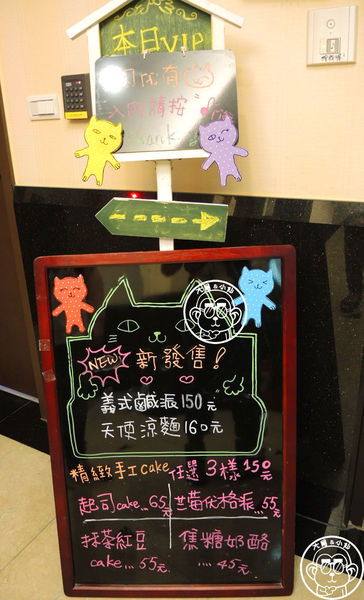 本日VIP
入內請按
NEW 新發售!
義式鹹派 150元
天使涼麵 160元
精緻手工cake 任選 3樣 150元
起司cake...65元
草莓优格派...55元
抹茶紅豆
cake....55元
焦糖奶酪
....45元